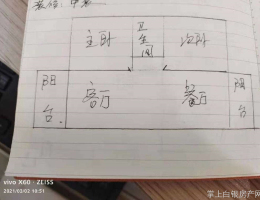 主卧
卫生间
次卧
阳台
客厅
餐厅
阳台
vivo X60 · ZEISS
2021/03/02 10:51
掌上白银房产网